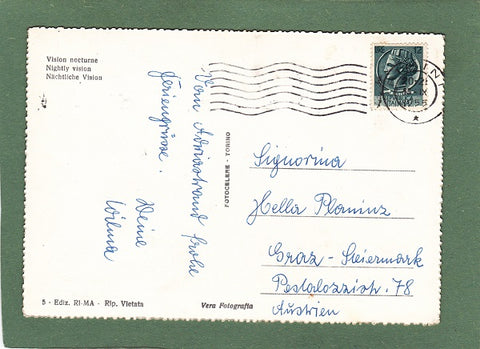 Vision nocturne
Nightly vision
Nächtliche Vision
Vom Adriastrand frohe
Feriengrüsse.
Deine
Wilma
FOTOCELERE - TORINO
Signorina
Hella Planinz
Graz - Steiermark
Pestalozzistr. 78
Austrien
5 - Ediz. RI-MA - Rip. Vietata
Vera Fotografia